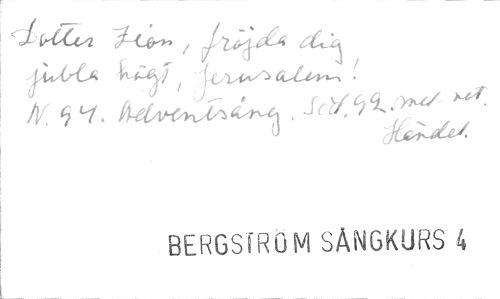 Dotter Zion, fröjda dig
jubla högt, Jerusalem!
N. 94. Adventsång. Sid. 92. mel. net.
Händel.
BERGSTRÖM SÅNGKURS 4